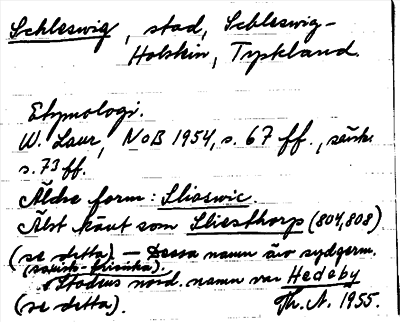 Schleswig, stad, Schleswig-
Holstein, Tyskland.
Etymologi.
W. Laur, NoB 1954, s. 67 ff., särsk.
s. 73 ff.
Äldre form: Sliaswic.
Äldst känt som Sliesthorp (804, 808)
(se detta). – Dessa namn äro sydgerm.
(saxisk-frisiska).
Stadens nord. namn var Hedeby
(se detta). Th. A. 1955.